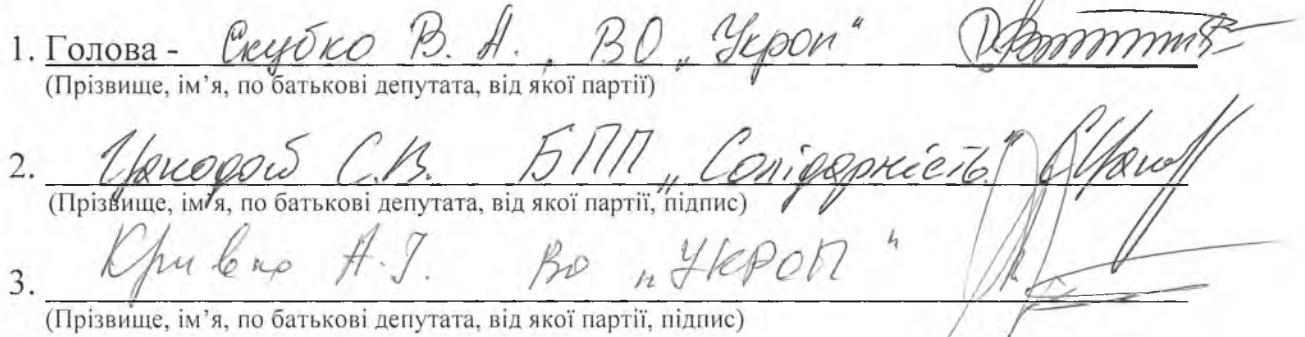 1. Голова - Скубко В. А., ВО „Укроп"
(Прізвище, ім’я, по батькові депутата, від якої партії)
2. Цакадоб С.В. БПП „Солідарність"
(Прізвище, ім’я, по батькові депутата, від якої партії, підпис)
3. Кривко А.І. ВО „УКРОП"
(Прізвище, ім’я, по батькові депутата, від якої партії, підпис)